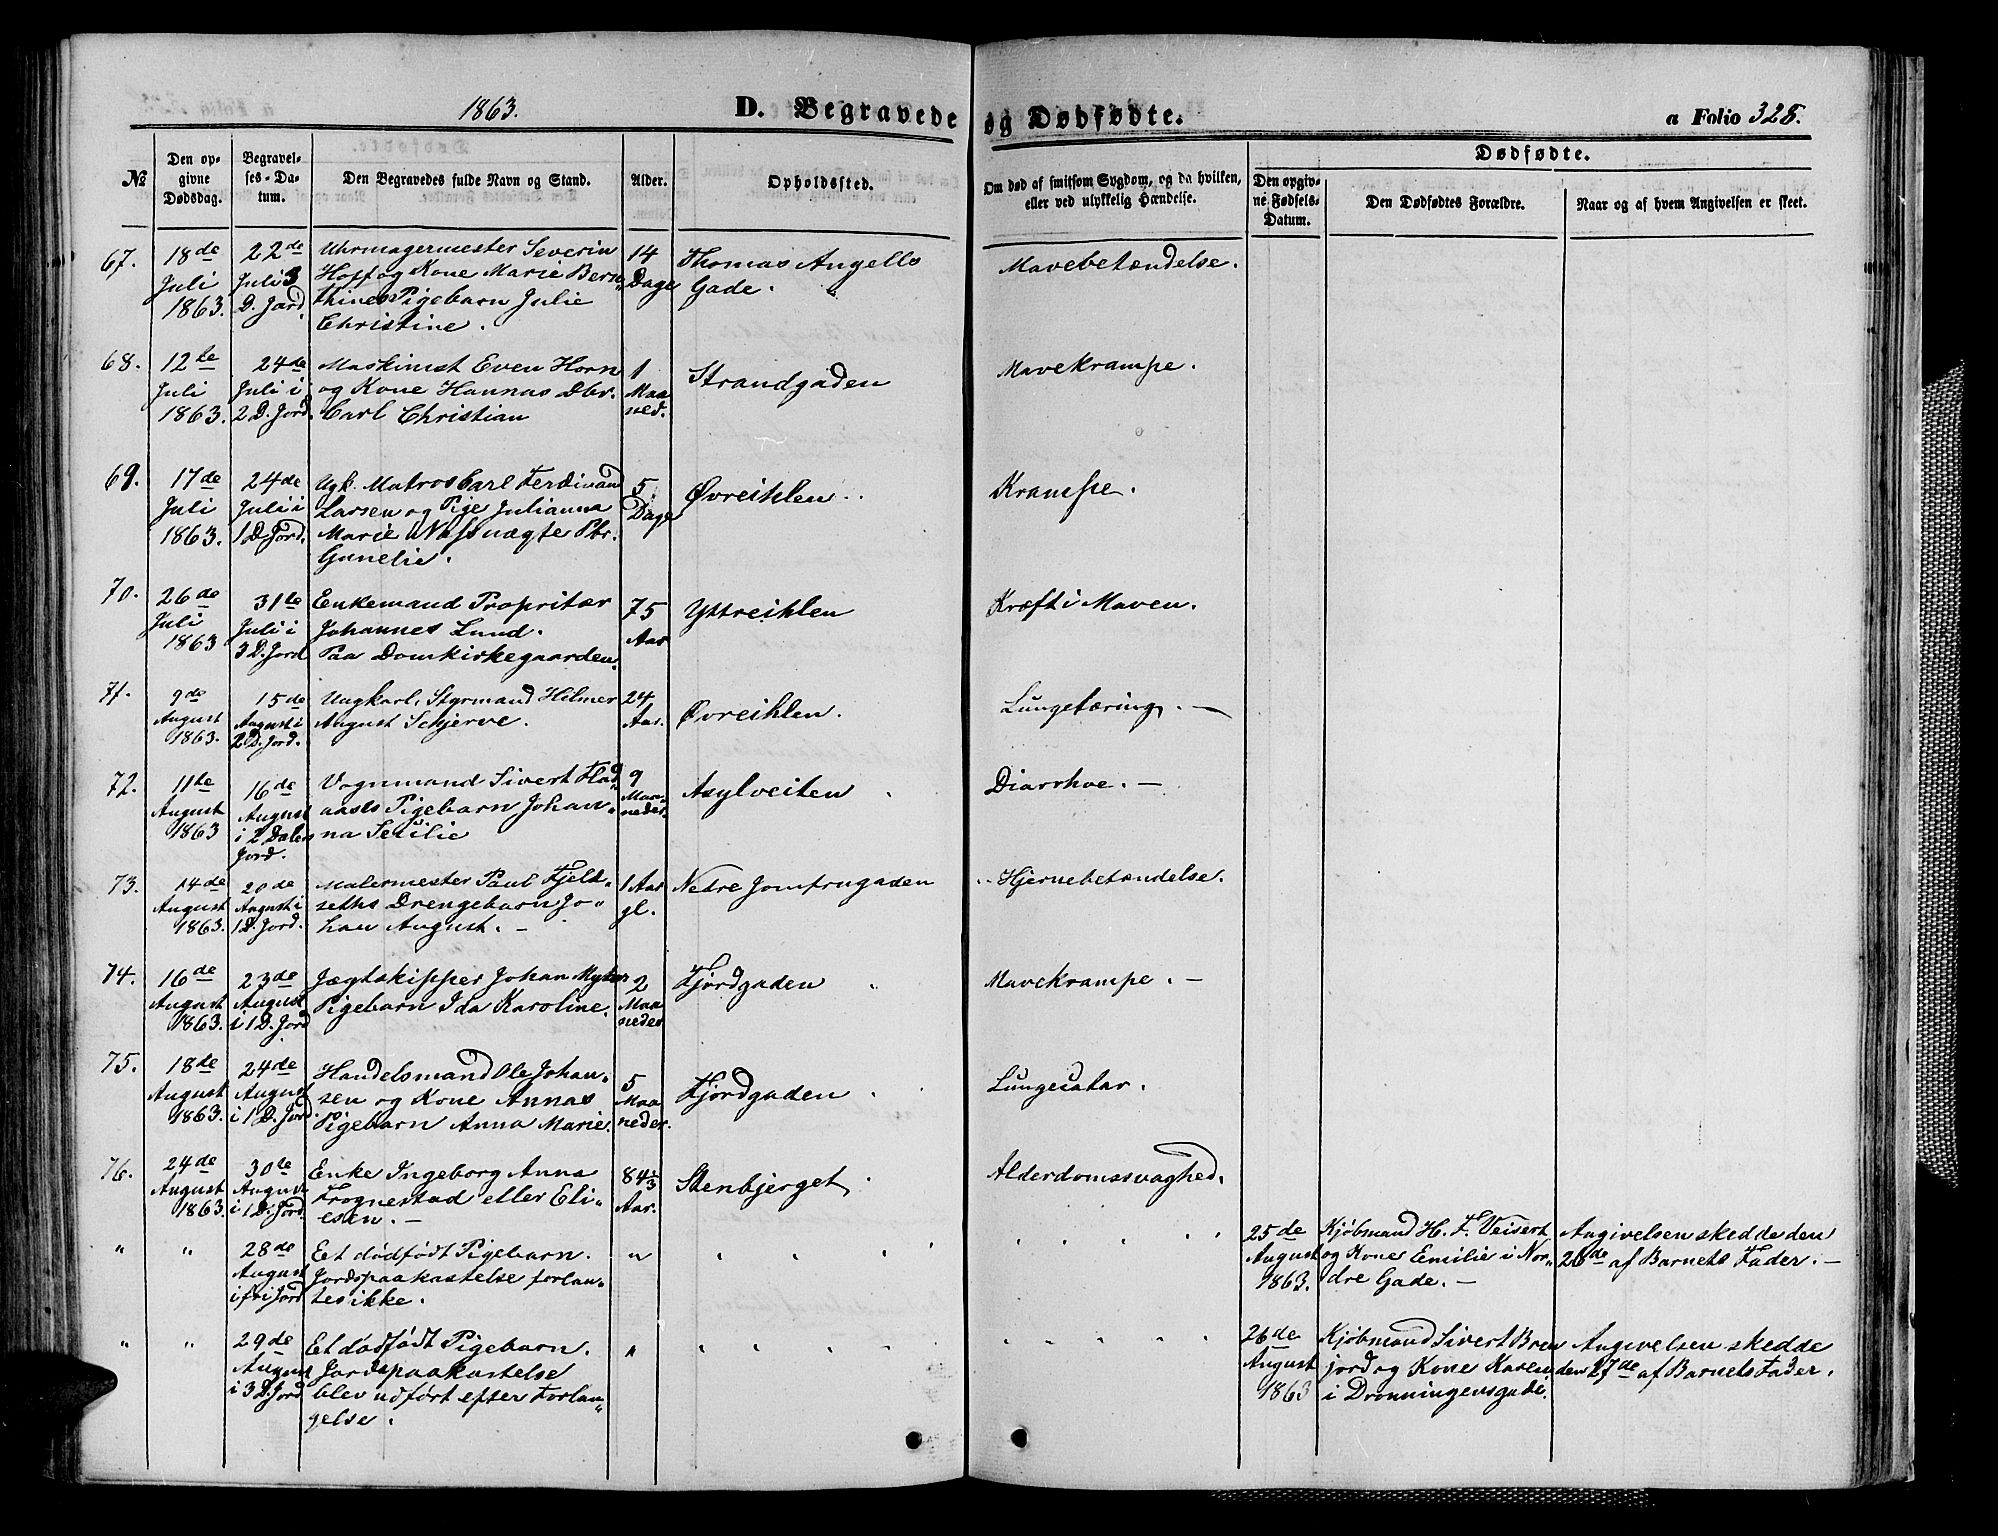 1863.
D. Begravede og Dødfødte.
a Folio 328.
№
Den op-
givne
Dødsdag.
Begravel-
ses-Da-
tum.
Den Begravedes fulde Navn og Stand.
Alder.
Opholdssted.
Om død af smitsom Sygdom, og da hvilken,
eller ved ulykkelig Hændelse.
Dødfødte.
Den opgiv-
ne Fødsels-
Datum.
Den Dødfødtes Forældre.
Naar og af hvem Angivelsen er skeet.
67.
18de
Juli
1863.
22de
Juli 3
D. Jord.
Uhrmagermester Severin
Hoff og Kone Marie Bern-
thines Pigebarn Julie
Christine.
14
Dage
Thomas Angells
Gade.
Mavebetændelse.
68.
12te
Juli
1863.
24de
Juli i
2 D. Jord.
Maskinist Even Horn
og Kone Hannas Dbr.
Carl Christian
1
Maa
ned.
Strandgaden
Mavekrampe.
69.
17de
Juli
1863.
24de
Juli i
1 D. Jord.
Ugk. Matros Carl Ferdinand
Larsen og Pige Julianna
Marie uægte Pbr.
Gunelie.
5
Dage
Øvreihlen.
Krampe.
70.
26de
Juli
1863
31te
Juli i
3 D. Jord
Enkemand Propritær
Johannes Lund.
Paa Domkirkegaarden.
75
Aar
Yttreihlen
Kræft i Maven.
71.
9de
August
1863.
15de
August i
2 D. Jord.
Ungkarl, Styrmand Hilmer
August Schjerve.
24
Aar.
Øvreihlen.
Lungetæring. —
72.
11te
August
1863
16de
August
i 2 Dalers
Jord.
Vognmand Sivert Flad-
aasls Pigebarn Johan-
na Secilie
9
Maa-
neder.
Asylveiten
Diarrhoe. —
73.
14de
August
1863.
20de
August i
1 D. Jord.
Malermester Paul Fjeld-
seths Drengebarn Jo-
han August. —
1 Aar
gl.
Nedre Jomfrugaden
Hjernebetændelse.
74.
16de
August
1863.
23de
August
i 1 D. Jord
Jægtskipper Johan
Pigebarn Ida Karoline.
2
Maa
neder
Fjordgaden
Mavekrampe. —
75.
18de
August
1863.
24de
August
i 1 D. Jord
Handelsmand Ole Johan-
sen og Kone Annas
Pigebarn Anna Marie.
5
Maa
neder.
Fjordgaden
Lungecatar.
76.
24de
August
1863
30te
August
i 1 D. Jord.
Enke Ingeborg Anna
Frognestad eller Eli-
esen. —
84⅓
Aar.
Stenbjerget
Alderdomssvaghed.
" "
28de
August
i fri Jord
Et dødfødt Pigebarn.
Jordspaakastelse forlan-
tes ikke.
"
25de
August
1863.
Kjøbmand H. F. Veisert
og Kone Emilie i Nor-
dre Gade. —
Angivelsen skedde den
26de af Barnets Fader. —
" "
29de
August
i 3 D. Jord
Et dødfødt Pigebarn.
Jordspaakastelse
blev udført efter Forlan-
gelse.
"
26de
August
1863
Kjøbmand Sivert Bren
jord og Kone Karen
i Dronningensgade.
Angivelsen skedde
den 27de af Barnets Fader.